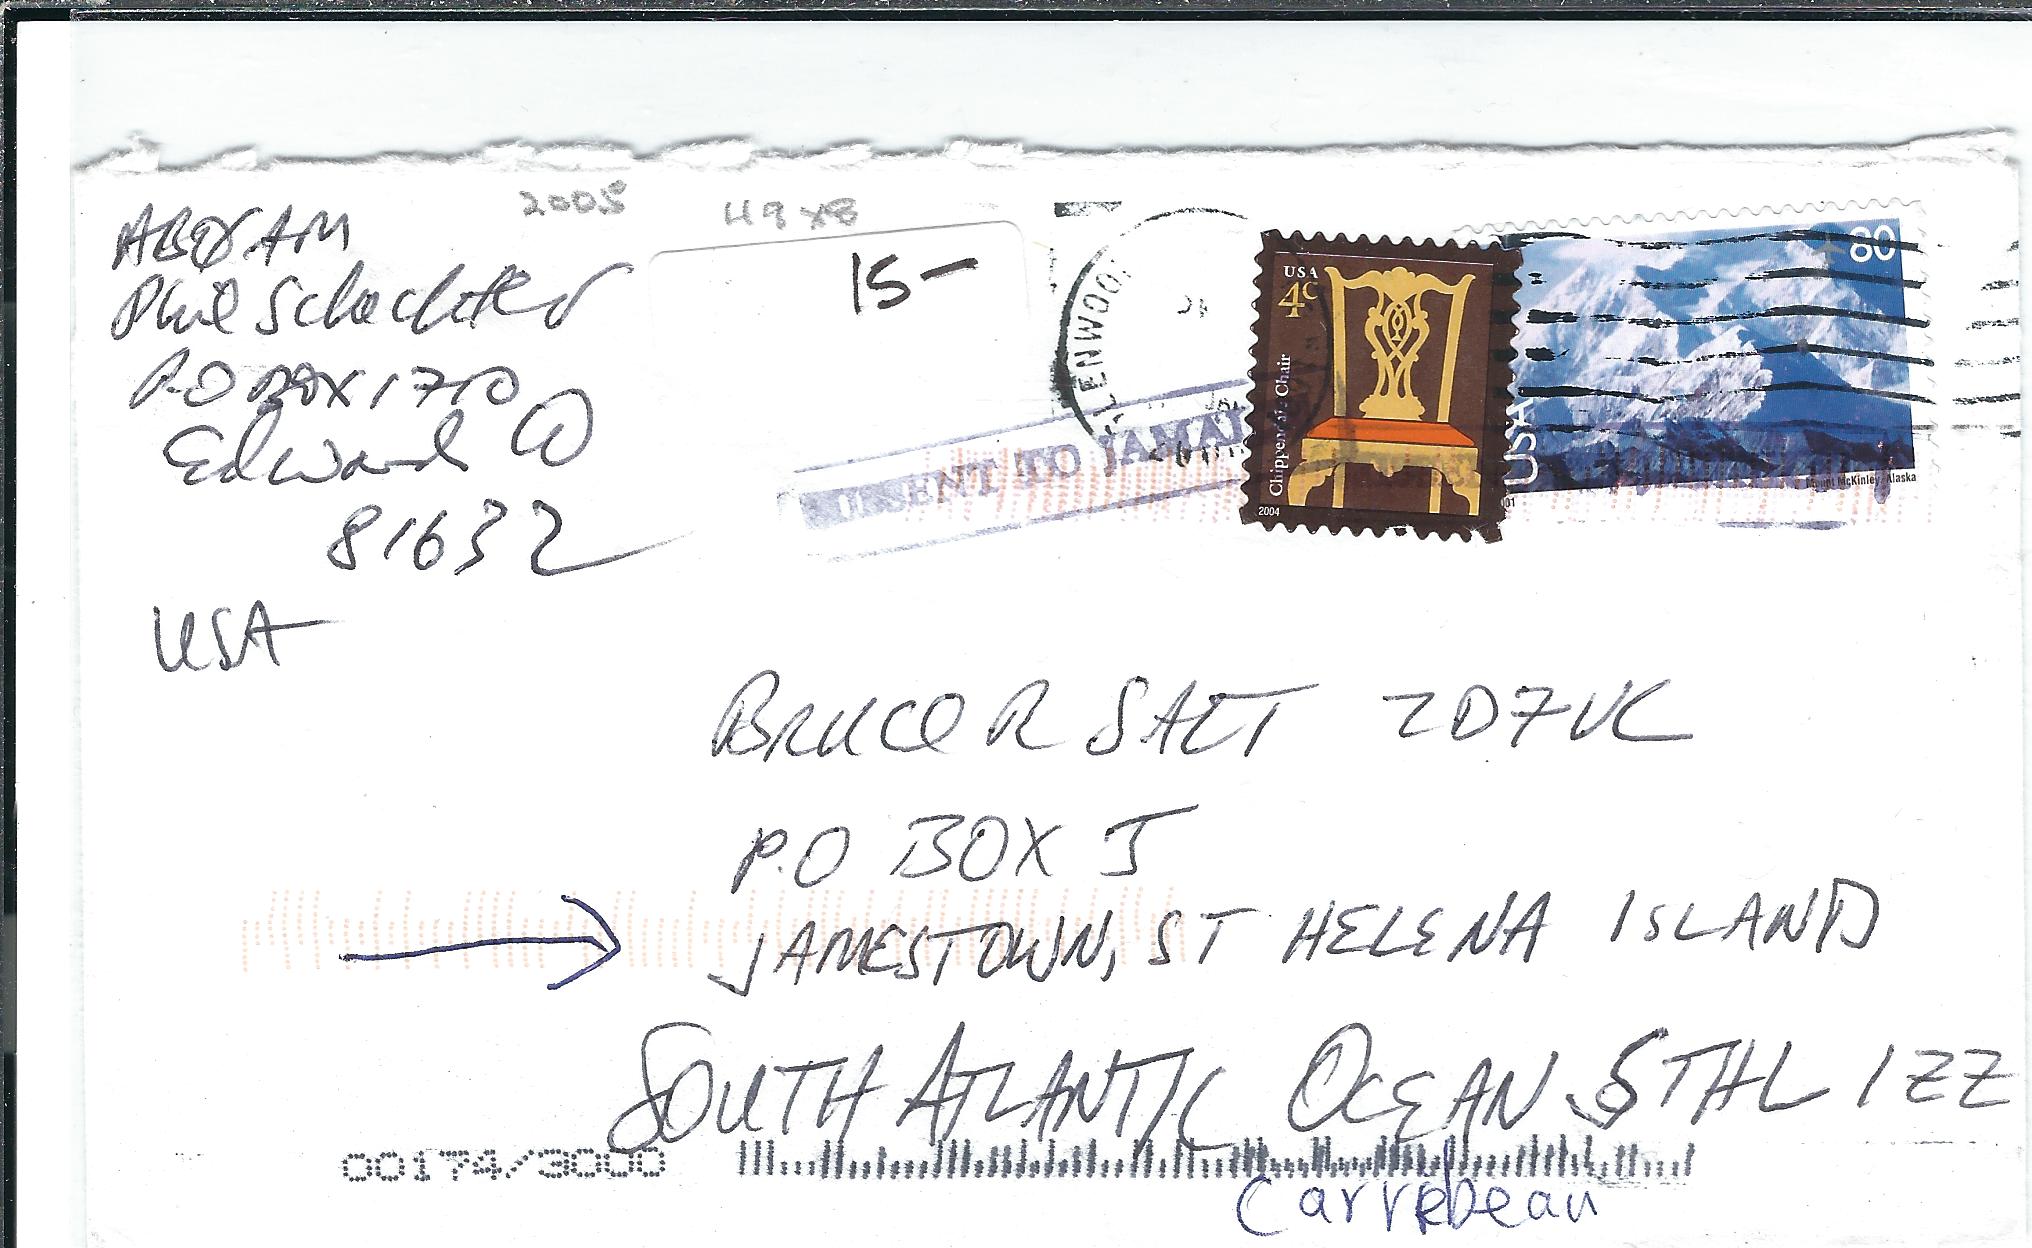 2005 49x8
ABØAM
Phil Schechter
P.O BOX 1710
Edwards CO
81632
USA
15-
GLENWOOD
SENT TO JAMAI
USA
4c
Chippendale Chair
2004
80
USA
Mount McKinley, Alaska
BRUCE R SALT ZD7VC
P.O BOX 5
JAMESTOWN, ST HELENA ISLAND
SOUTH ATLANTIC OCEAN STHL 1ZZ
00174/3000
Carrebean